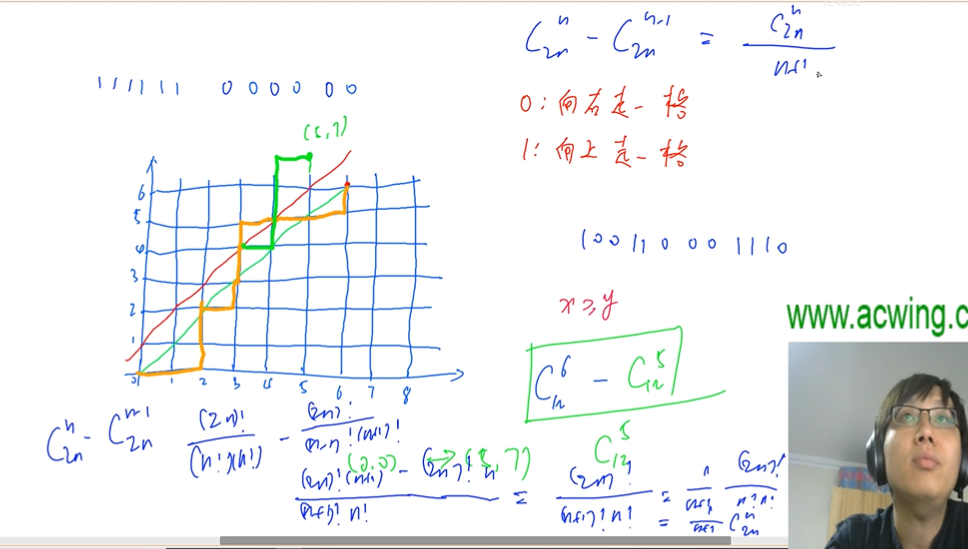 C₂ₙⁿ - C₂ₙⁿ⁻¹ = C₂ₙⁿ / n+1
111111 000000
0: 向右走一格
1: 向上走一格
(5,7)
6
5
4
3
2
1
0 1 2 3 4 5 6 7 8
100110001110
x ≥ y
www.acwing.c
C₁₂⁶ - C₁₂⁵
C₁₂⁵
C₂ₙⁿ - C₂ₙⁿ⁻¹ (2n)! / (n!)(n!) - (2n)! / (n-1)!(n+1)!
(0,0) → (5,7)
(2n)!(n+1) - (2n)! n / (n+1)! n! = (2n)! / (n+1)! n! = 1 / n+1 (2n)! / n! n!
= 1 / n+1 C₂ₙⁿ